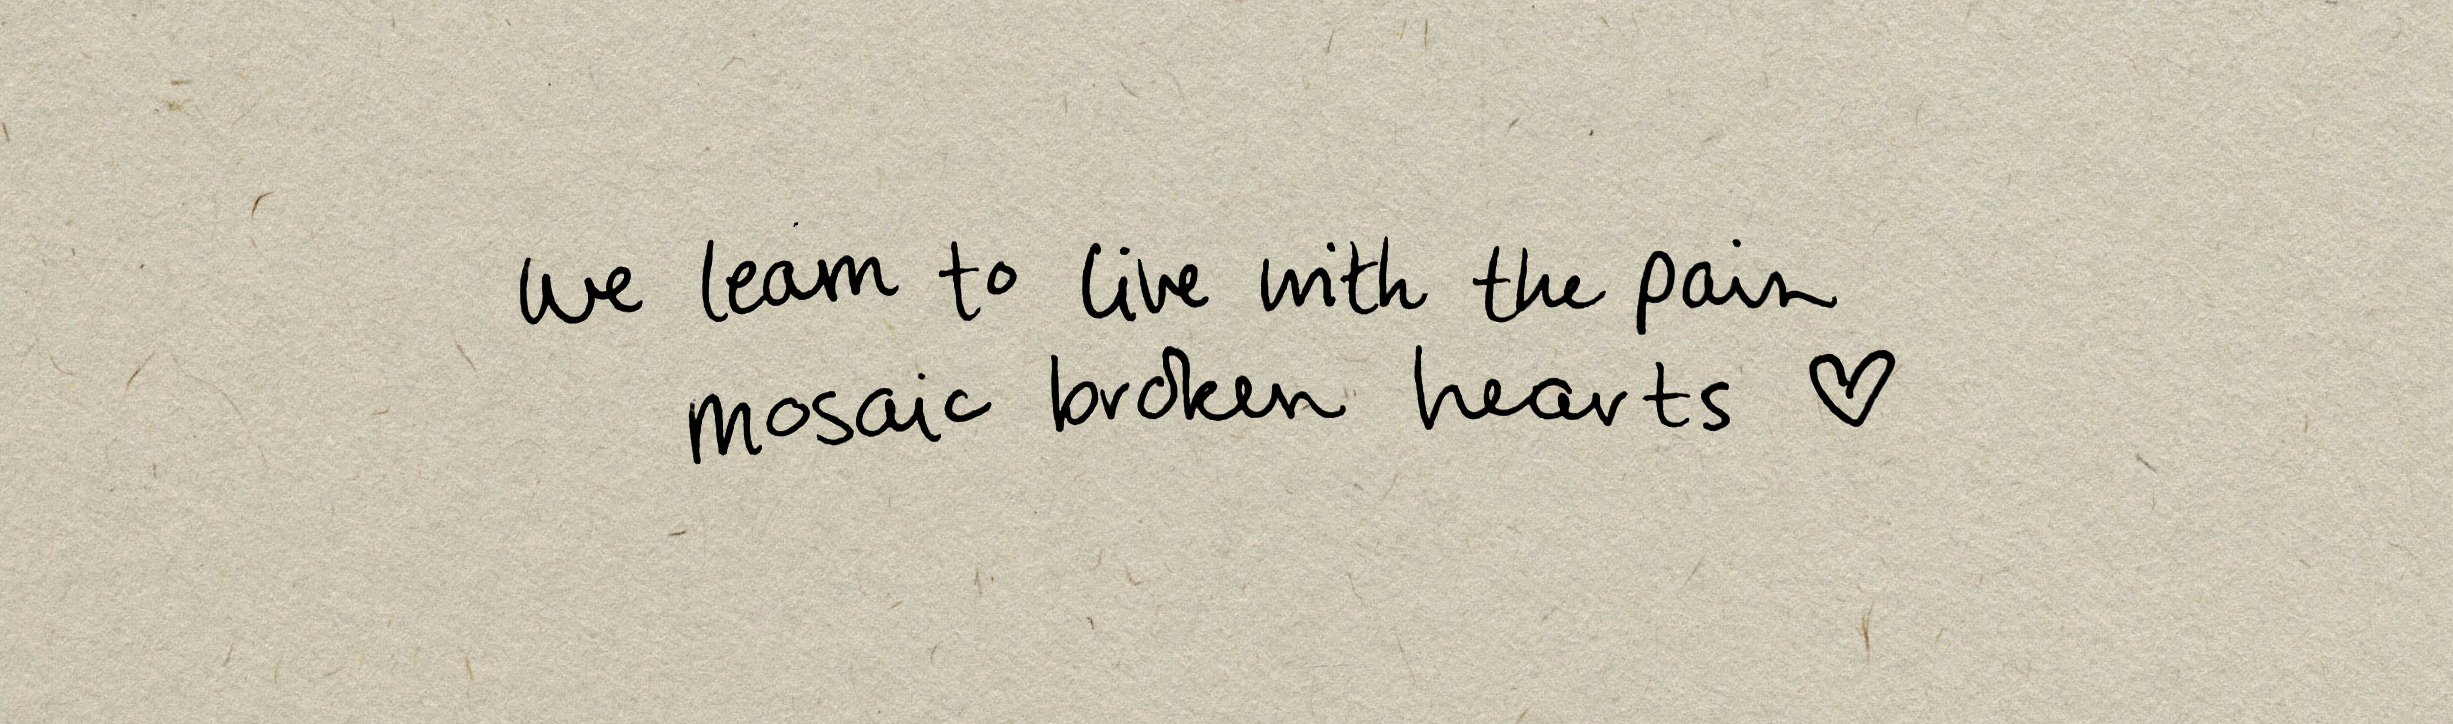 we learn to live with the pain
mosaic broken hearts ♡